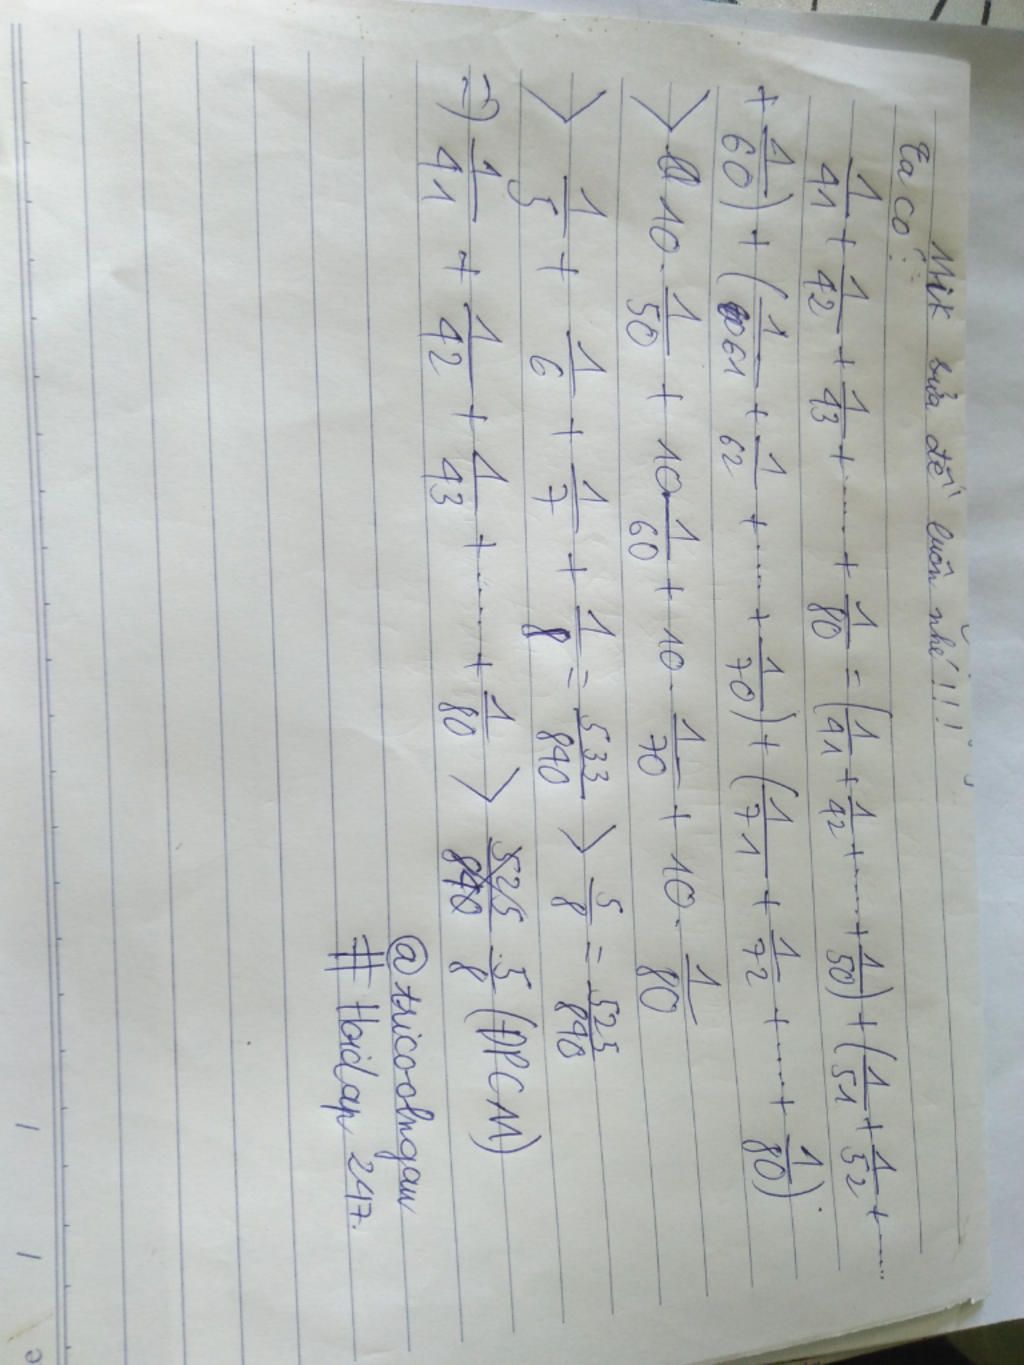 Mik sửa đề luôn nhé!!!
Ta có:
1/41 + 1/42 + 1/43 + ..... + 1/80 = (1/41 + 1/42 + ..... + 1/50) + (1/51 + 1/52 + .....
+ 1/60) + (1/61 + 1/62 + ..... + 1/70) + (1/71 + 1/72 + ..... + 1/80)
> 10 . 1/50 + 10 . 1/60 + 10 . 1/70 + 10 . 1/80
> 1/5 + 1/6 + 1/7 + 1/8 = 533/840 > 5/8 = 525/840
=> 1/41 + 1/42 + 1/43 + ..... + 1/80 > 5/8 (ĐPCM)
# Hoidap 247.